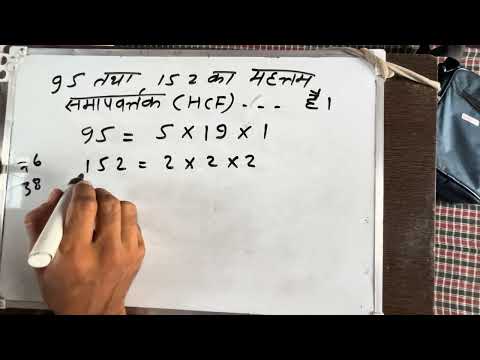 95 तथा 152 का महत्तम
समापवर्त्तक (HCF) - - - है।
95 = 5 × 19 × 1
152 = 2 × 2 × 2
38